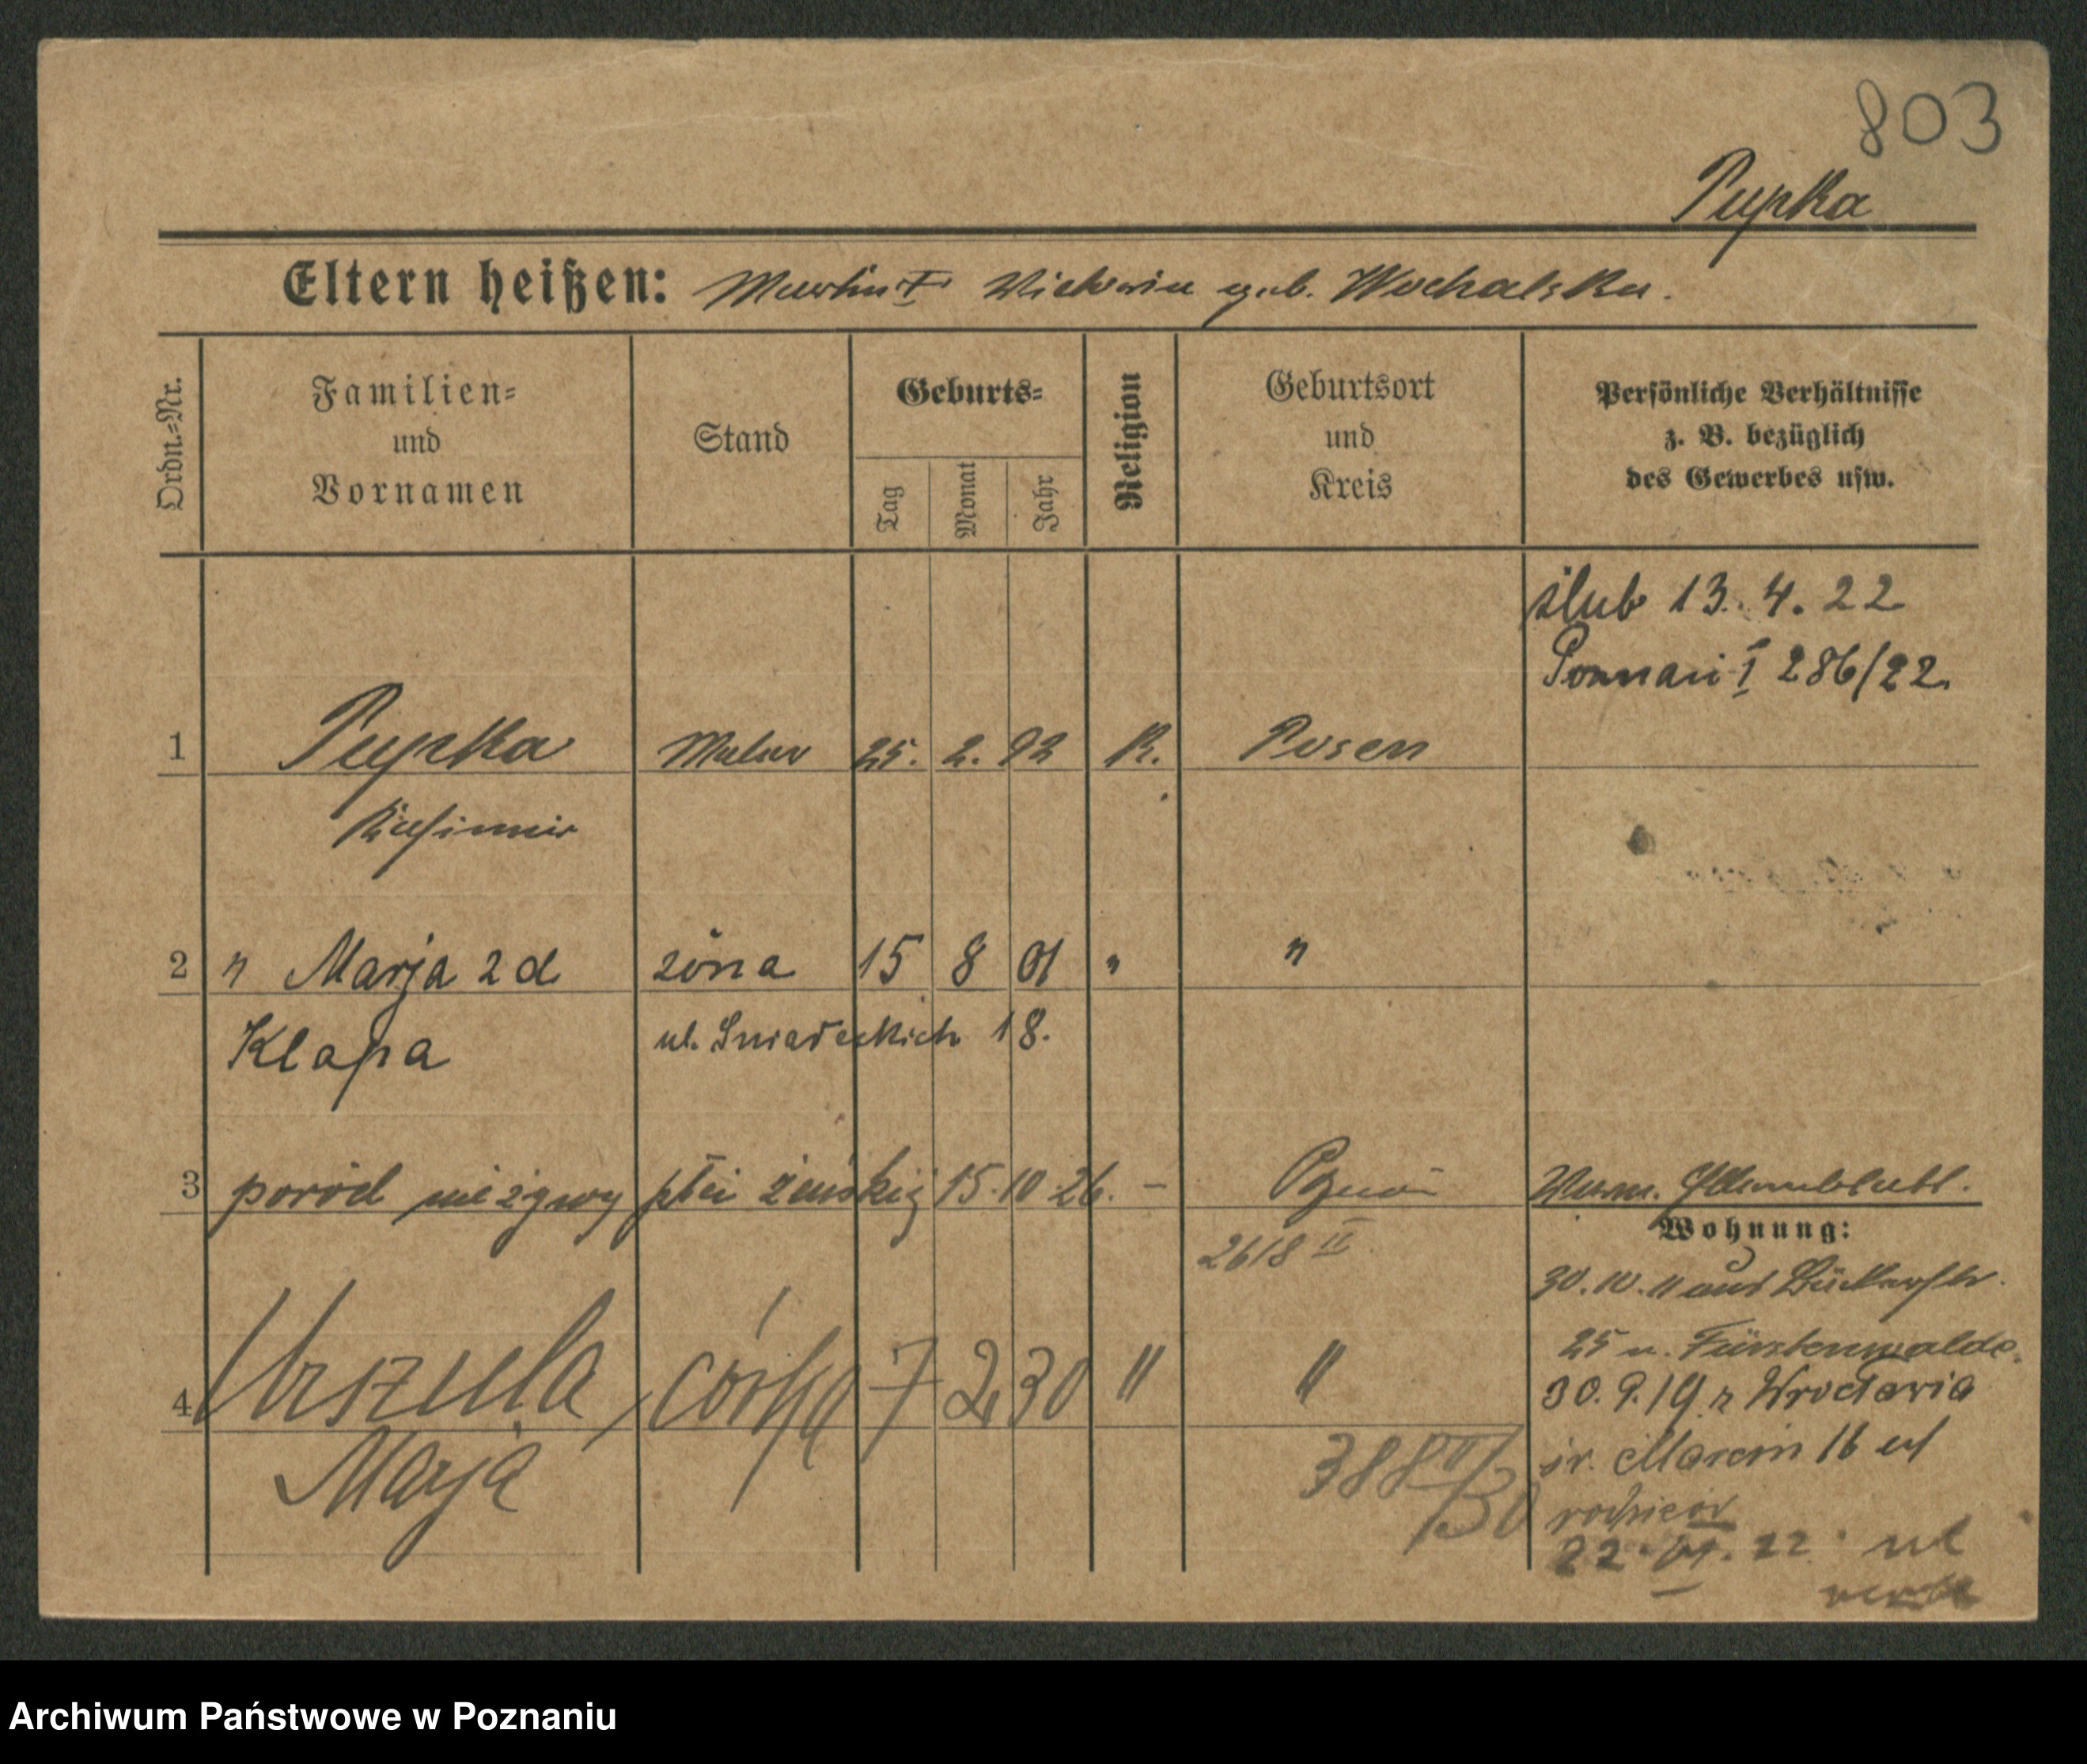 803
Pupka
Eltern heißen: Martin u. Victoria geb. Wochalska.
Ordn.=Nr.
Familien=
und
Vornamen
Stand
Geburts=
Tag
Monat
Jahr
Religion
Geburtsort
und
Kreis
Persönliche Verhältnisse
z. B. bezüglich
des Gewerbes usw.
ślub 13. 4. 22
Poznań I 286/22.
1 Pupka Maler 25. 2. 92 K. Posen
Kasimir
2 " Marja 2 d żona 15 8 01 " "
Klapa ul. Śniadeckich 18.
3 poród nieżywy płci żeńskiej 15. 10 26. - Poznań
2618 II
Wohnung:
30. 10. 11 aus
25 n. Fürstenwalde.
4 Urszula, córka 7 2 30 " "
Marja
388 II/30
30. 9. 19 z Wrocławia
św. Marcin 16 u/
rodziców
22. VI. 22. ul
Archiwum Państwowe w Poznaniu